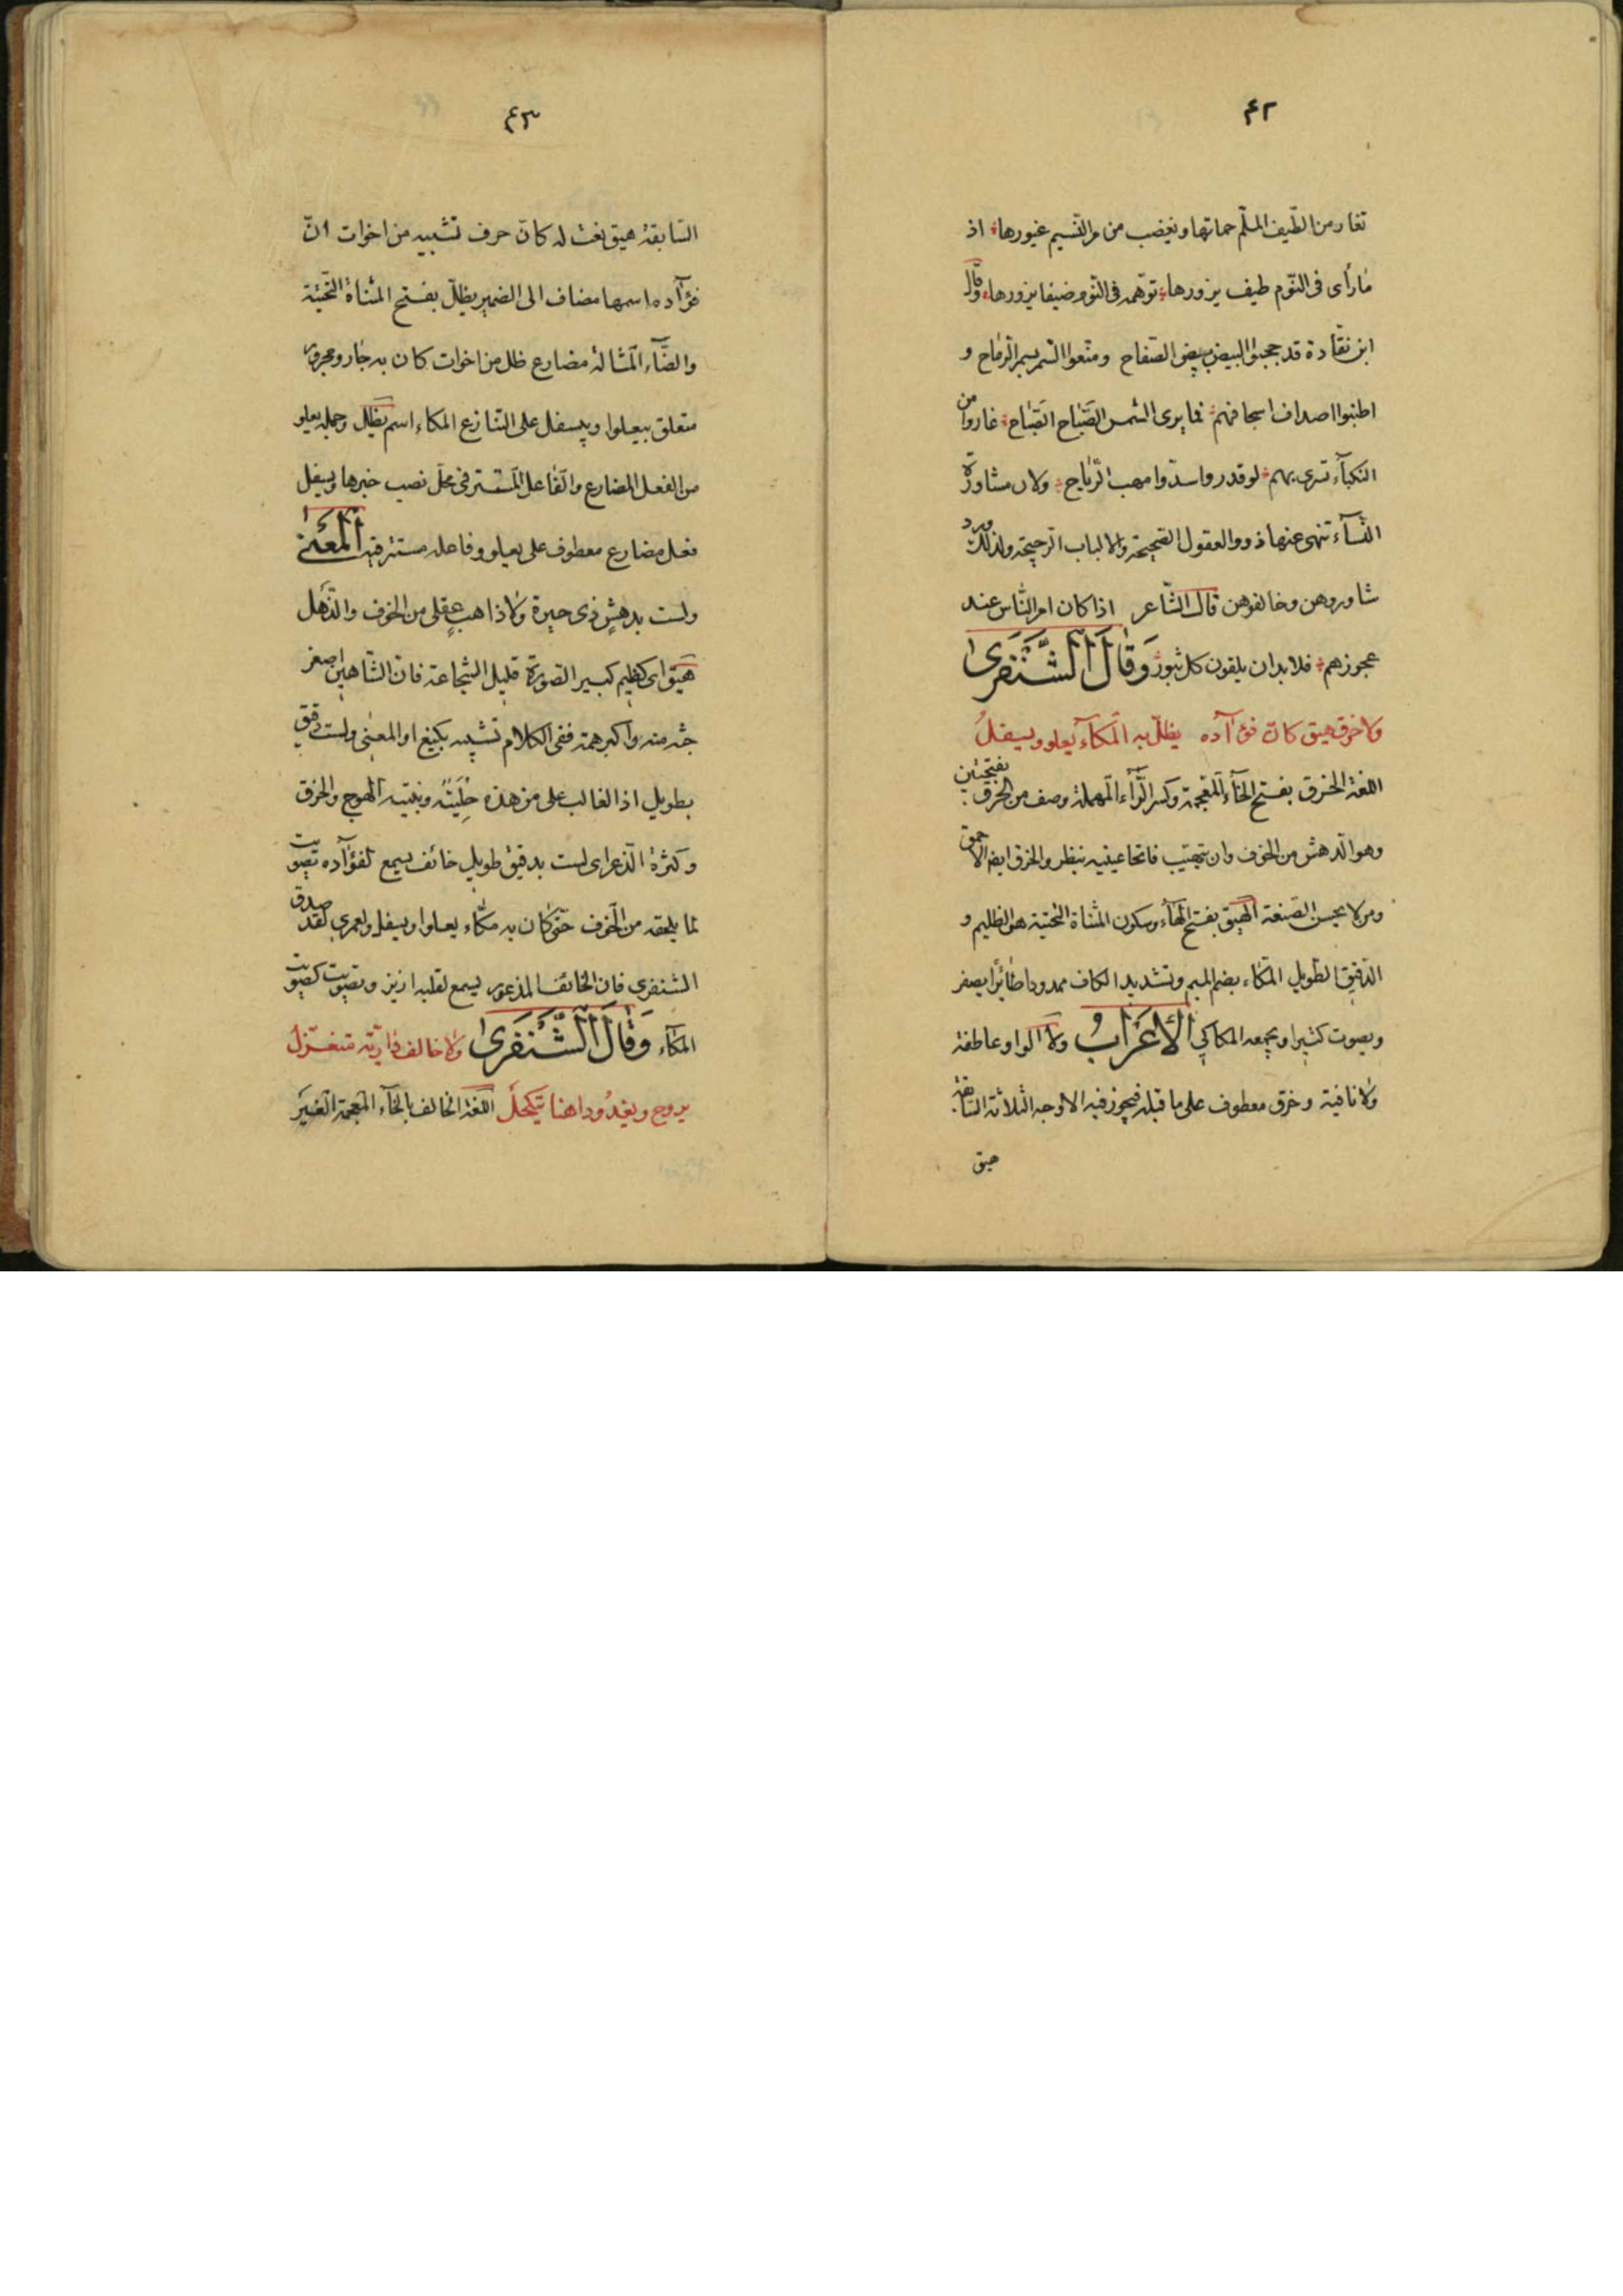 ٤٢
تغار من الطّيف الملّم حماتها ويغضب من مرّ النّسيم غيورها اذ
ما رأى فى النّوم طيف يزورها توّهمه فى النّوم ضيفا يزورها وقال
ابن نقادة قد حجبوا البيض ببيض الصّفاح ومنّعوا السّمر بسمر الرّماح و
اطنبوا اصداف اسجافهم فما يرى الشمس الصّباح الصّباح غاروا من
النكبآء تسرى بهم لو قدروا سدّوا مهب الرّياح ولان مشاورة
النّسآء تنهى عنها ذوو العقول الصّحيحة والالباب الرّجيحة ولذلك ورد
شاوروهن وخالفوهن قال الشّاعر اذا كان امر النّاس عند
عجوزهم فلابد ان يلقون كل ثبور وَقَالَ الشَّنْفَرى
ولا خرق هيق كانّ فؤآده يظلّ به المكّآء يعلو ويسفلُ
اللغة الخرق بفتح الخآء المعجمة وكسر الرّآء المهملة وصف من الخرق بفتحتين
وهو الدّهش من الخوف وان يتهيّب فاتحا عينيه ينظر والخرق ايضا الاحمق
ومن لا يحسن الصّنعة الهيق بفتح الهآء وسكون المثناة التحتية هو الظليم و
الدّقيق الطّويل المكّاء بضم الميم وتشديد الكاف ممدودا طائرا يصفر
ويصوت كثيرا ويجمعه المكاكي الْأَعْرَابُ ولا الواو عاطفة
ولا نافية وخرق معطوف على ما قبله فيجوز فيه الاوجه الثلاثة السّابقة
هيق
٤٣
السّابقة هيق نعت له كانّ حرف تشبيه من اخوات انّ
فؤآده اسمها مضاف الى الضمير يظلّ بفتح المثناة التّحتيّة
والظّآء المشالة مضارع ظل من اخوات كان به جار ومجرور
متعلق بيعلوا ويسفل على التنازع المكاء اسم يظل وجملة يعلو
من الفعل المضارع والفاعل المستتر فى محلّ نصب خبرها ويسفل
فعل مضارع معطوف على يعلو وفاعله مستتر فيه الْمَعْنى
ولست بدهشٍ ذى حيرة ولا ذاهب عقلى من الخوف والذّهل
هيق اى كظليم كبير الصّورة قليل الشجاعة فانّ الشّاهين اصغر
جثة منه واكبر همة ففى الكلام تشبيه بليغ او المعنى ولست بدقيق
بطويل اذ الغالب على من هذه حِلْيَتُه وبنيته الهوج والخرق
وكثرة الذّعر اى لست بدقيق طويل خائف يسمع لفؤآده تصويت
لما يلحقه من الخوف حتّى كان به مكّاء يعلوا ويسفل ولعمرى لقد صدق
الشنفرى فان الخائف المذعور يسمع لقلبه ازيز وتصويت كصويت
المكآء وَقَالَ الشَّنْفَرى ولا خالف داريّه متغزل
يروح ويغدُو داهنا يتكحل اللغة الخالف بالخآء المعجمة الغير